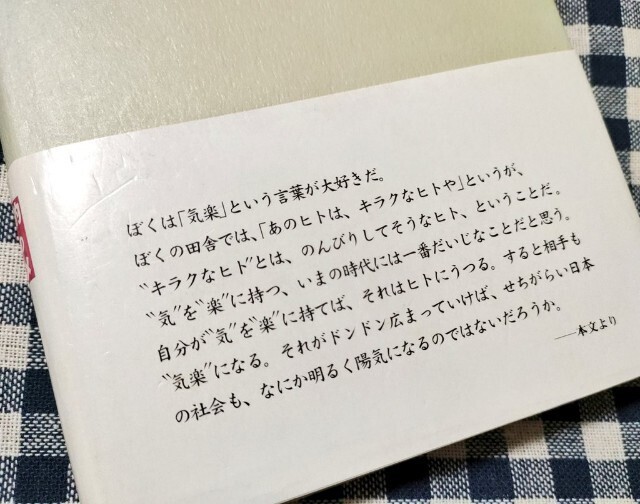 ぼくは「気楽」という言葉が大好きだ。
ぼくの田舎では、「あのヒトは、キラクなヒトや」というが、
〝キラクなヒト〟とは、のんびりしてそうなヒト、ということだ。
〝気〟を〝楽〟に持つ、いまの時代には一番だいじなことだと思う。
自分が〝気〟を〝楽〟に持てば、それはヒトにうつる。すると相手も
〝気楽〟になる。それがドンドン広まっていけば、せちがらい日本
の社会も、なにか明るく陽気になるのではないだろうか。
──本文より